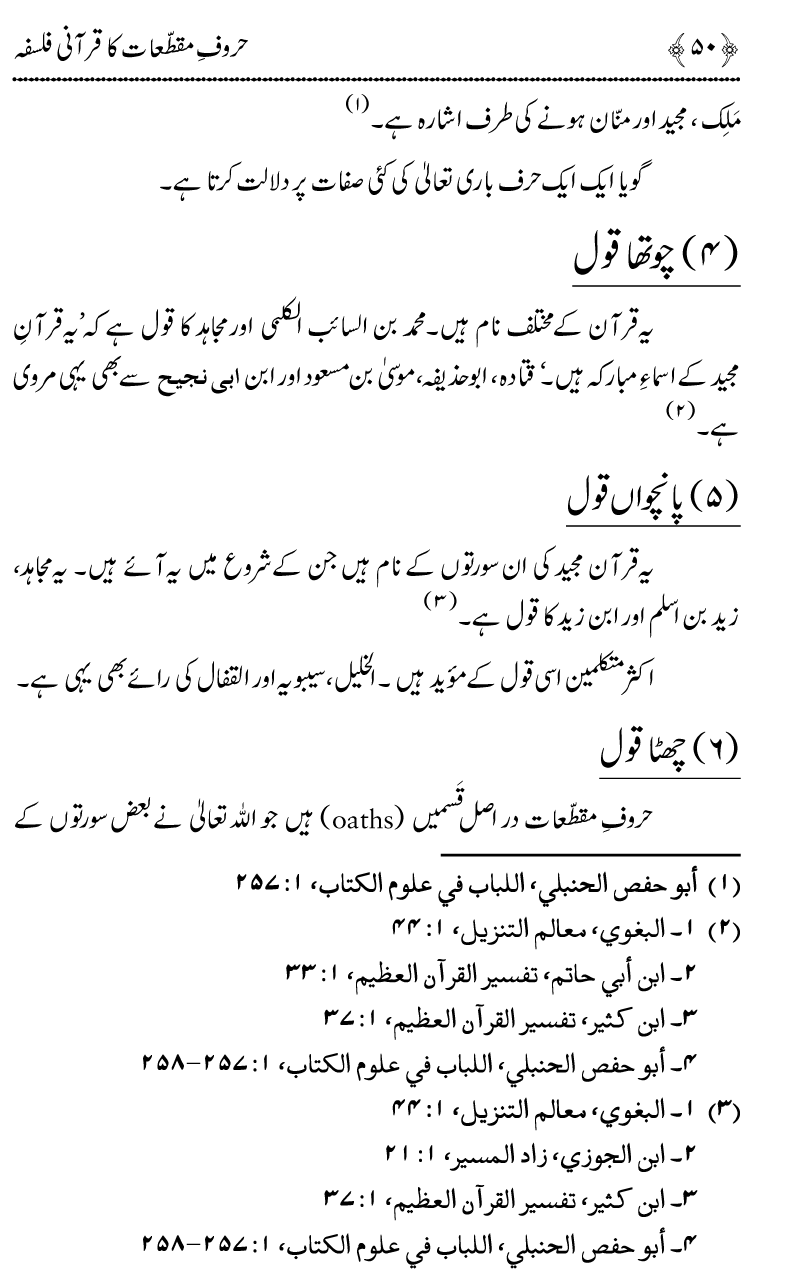 ﴿۵۰﴾ حروفِ مقطّعات کا قرآنی فلسفہ
مَلِک ، مجید اور منّان ہونے کی طرف اشارہ ہے۔(۱)
گویا ایک ایک حرف باری تعالیٰ کی کئی صفات پر دلالت کرتا ہے۔
(۴) چوتھا قول
یہ قرآن کے مختلف نام ہیں۔ محمد بن السائب الکلبی اور مجاہد کا قول ہے کہ ’یہ قرآنِ
مجید کے اسماءِ مبارکہ ہیں۔‘ قتادہ، ابوحذیفہ، موسیٰ بن مسعود اور ابن ابی نجیح سے بھی یہی مروی
ہے۔(۲)
(۵) پانچواں قول
یہ قرآن مجید کی ان سورتوں کے نام ہیں جن کے شروع میں یہ آئے ہیں۔ یہ مجاہد،
زید بن اسلم اور ابن زید کا قول ہے۔(۳)
اکثر متکلمین اسی قول کے مؤید ہیں ۔ الخلیل، سیبویہ اور القفال کی رائے بھی یہی ہے۔
(۶) چھٹا قول
حروفِ مقطّعات در اصل قَسمیں (oaths) ہیں جو اللہ تعالیٰ نے بعض سورتوں کے
(۱) أبو حفص الحنبلي، اللباب في علوم الكتاب، ۱: ۲۵۷
(۲) ۱۔ البغوي، معالم التنزيل، ۱: ۴۴
۲۔ ابن أبي حاتم، تفسير القرآن العظيم، ۱: ۳۳
۳۔ ابن كثير، تفسير القرآن العظيم، ۱: ۳۷
۴۔ أبو حفص الحنبلي، اللباب في علوم الكتاب، ۱: ۲۵۷–۲۵۸
(۳) ۱۔ البغوي، معالم التنزيل، ۱: ۴۴
۲۔ ابن الجوزي، زاد المسير، ۱: ۲۱
۳۔ ابن كثير، تفسير القرآن العظيم، ۱: ۳۷
۴۔ أبو حفص الحنبلي، اللباب في علوم الكتاب، ۱: ۲۵۷–۲۵۸